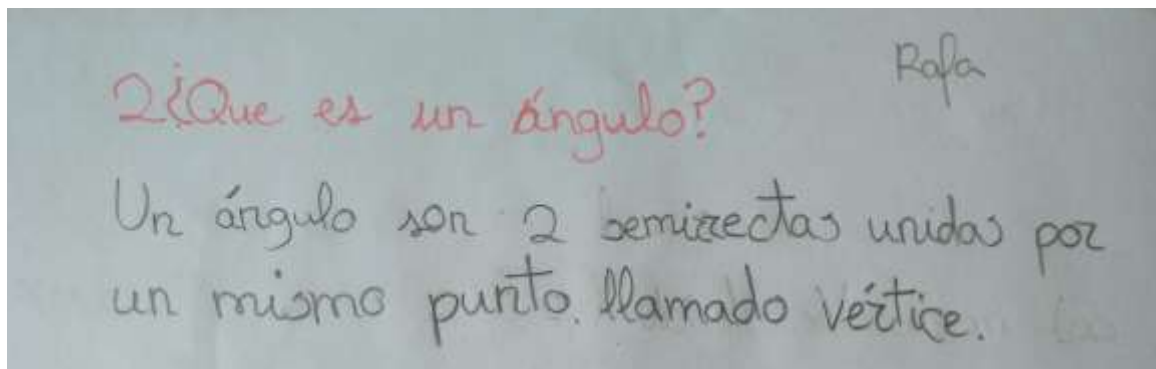 Rafa
2¿Que es un ángulo?
Un ángulo son 2 semirectas unidas por
un mismo punto. llamado vértice.